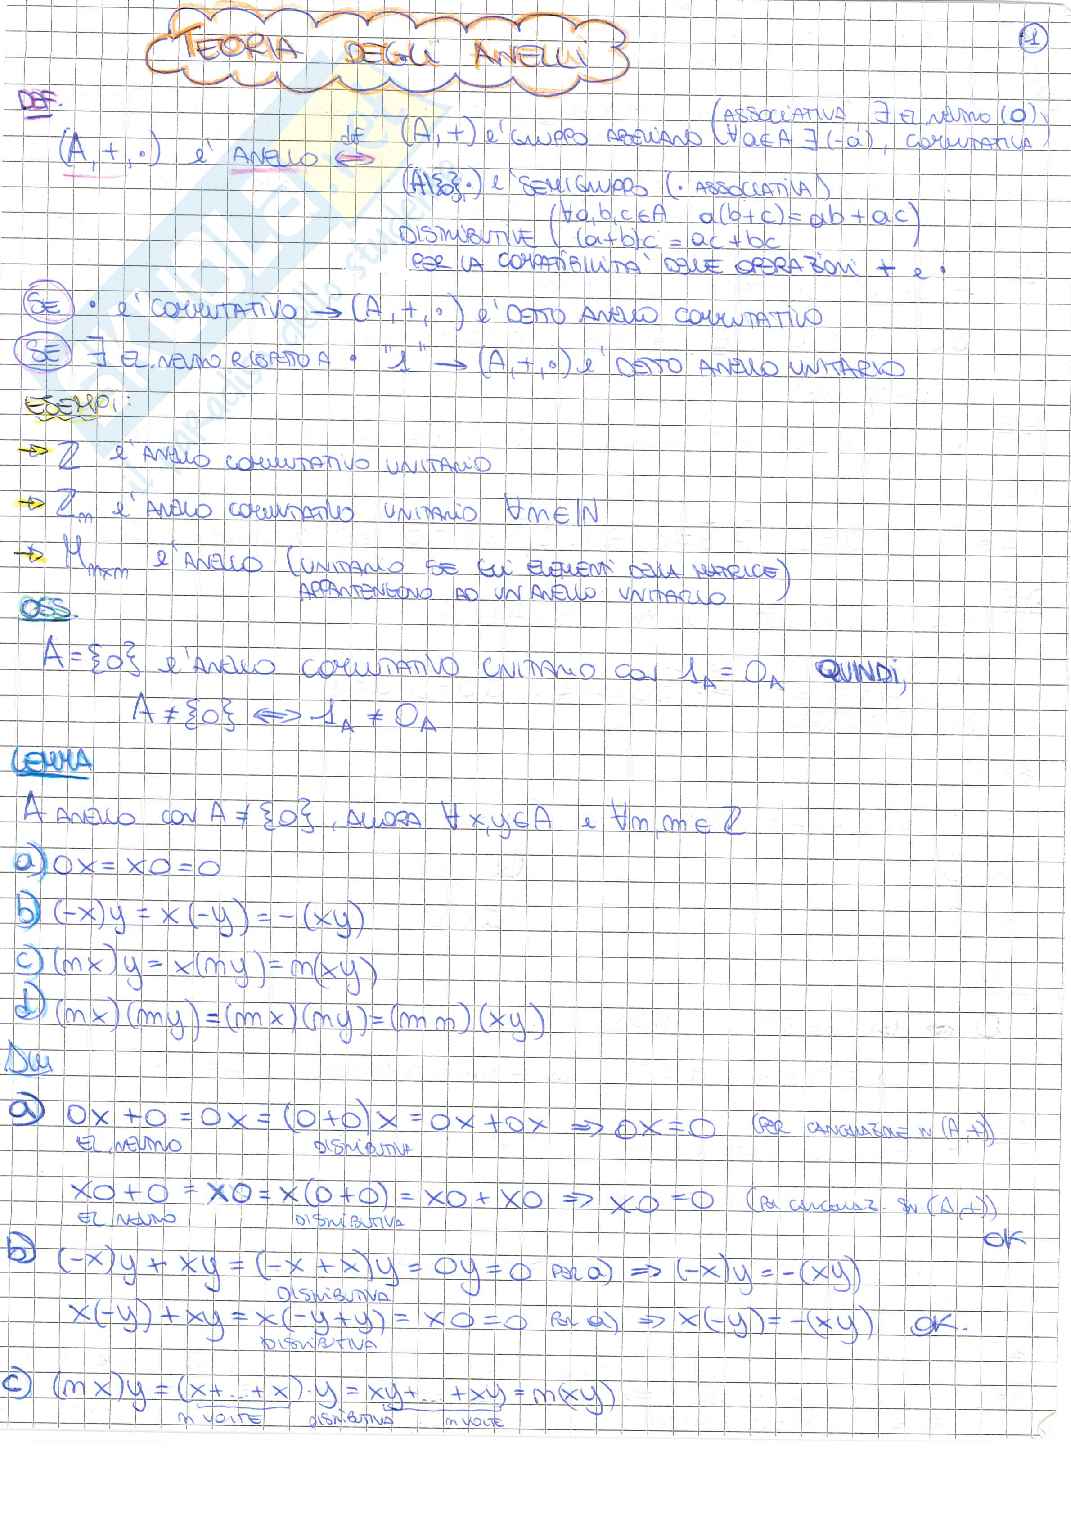 TEORIA DEGLI ANELLI
1
DEF.
(A,+,·) e' ANELLO ⇔def (A,+) e' GRUPPO ABELIANO (ASSOCIATIVA, ∃ EL. NEUTRO (0),
∀a∈A ∃(-a), COMMUTATIVA)
(A\{0},·) e' SEMIGRUPPO (· ASSOCIATIVA)
DISTRIBUTIVE (∀a,b,c∈A a(b+c)=ab+ac
(a+b)c=ac+bc)
PER LA COMPATIBILITA' DELLE OPERAZIONI + e ·
SE · e' COMMUTATIVO → (A,+,·) e' DETTO ANELLO COMMUTATIVO
SE ∃ EL. NEUTRO RISPETTO A · "1" → (A,+,·) e' DETTO ANELLO UNITARIO
ESEMPI:
→ ℤ e' ANELLO COMMUTATIVO UNITARIO
→ ℤm e' ANELLO COMMUTATIVO UNITARIO ∀m∈ℕ
→ Mmxm e' ANELLO (UNITARIO SE GLI ELEMENTI DELLA MATRICE
APPARTENGONO AD UN ANELLO UNITARIO)
OSS.
A={0} e' ANELLO COMMUTATIVO UNITARIO CON 1A=0A QUINDI,
A≠{0} ⇔ 1A≠0A
LEMMA
A ANELLO CON A≠{0}, ALLORA ∀x,y∈A e ∀n,m∈ℤ
a) 0x=x0=0
b) (-x)y=x(-y)=-(xy)
c) (nx)y=x(ny)=n(xy)
d) (nx)(my)=(mx)(ny)=(nm)(xy)
Dim
a) 0x+0=0x=(0+0)x=0x+0x ⇒ 0x=0 (PER CANCELLAZIONE IN (A,+))
EL. NEUTRO DISTRIBUTIVA
x0+0=x0=x(0+0)=x0+x0 ⇒ x0=0 (PER CANCELLAZ. IN (A,+))
EL. NEUTRO DISTRIBUTIVA
OK
b) (-x)y+xy=(-x+x)y=0y=0 PER a) ⇒ (-x)y=-(xy)
DISTRIBUTIVA
x(-y)+xy=x(-y+y)=x0=0 PER a) ⇒ x(-y)=-(xy) OK.
DISTRIBUTIVA
c) (nx)y=(x+...+x)·y=xy+...+xy=n(xy)
n VOLTE DISTRIBUTIVA n VOLTE